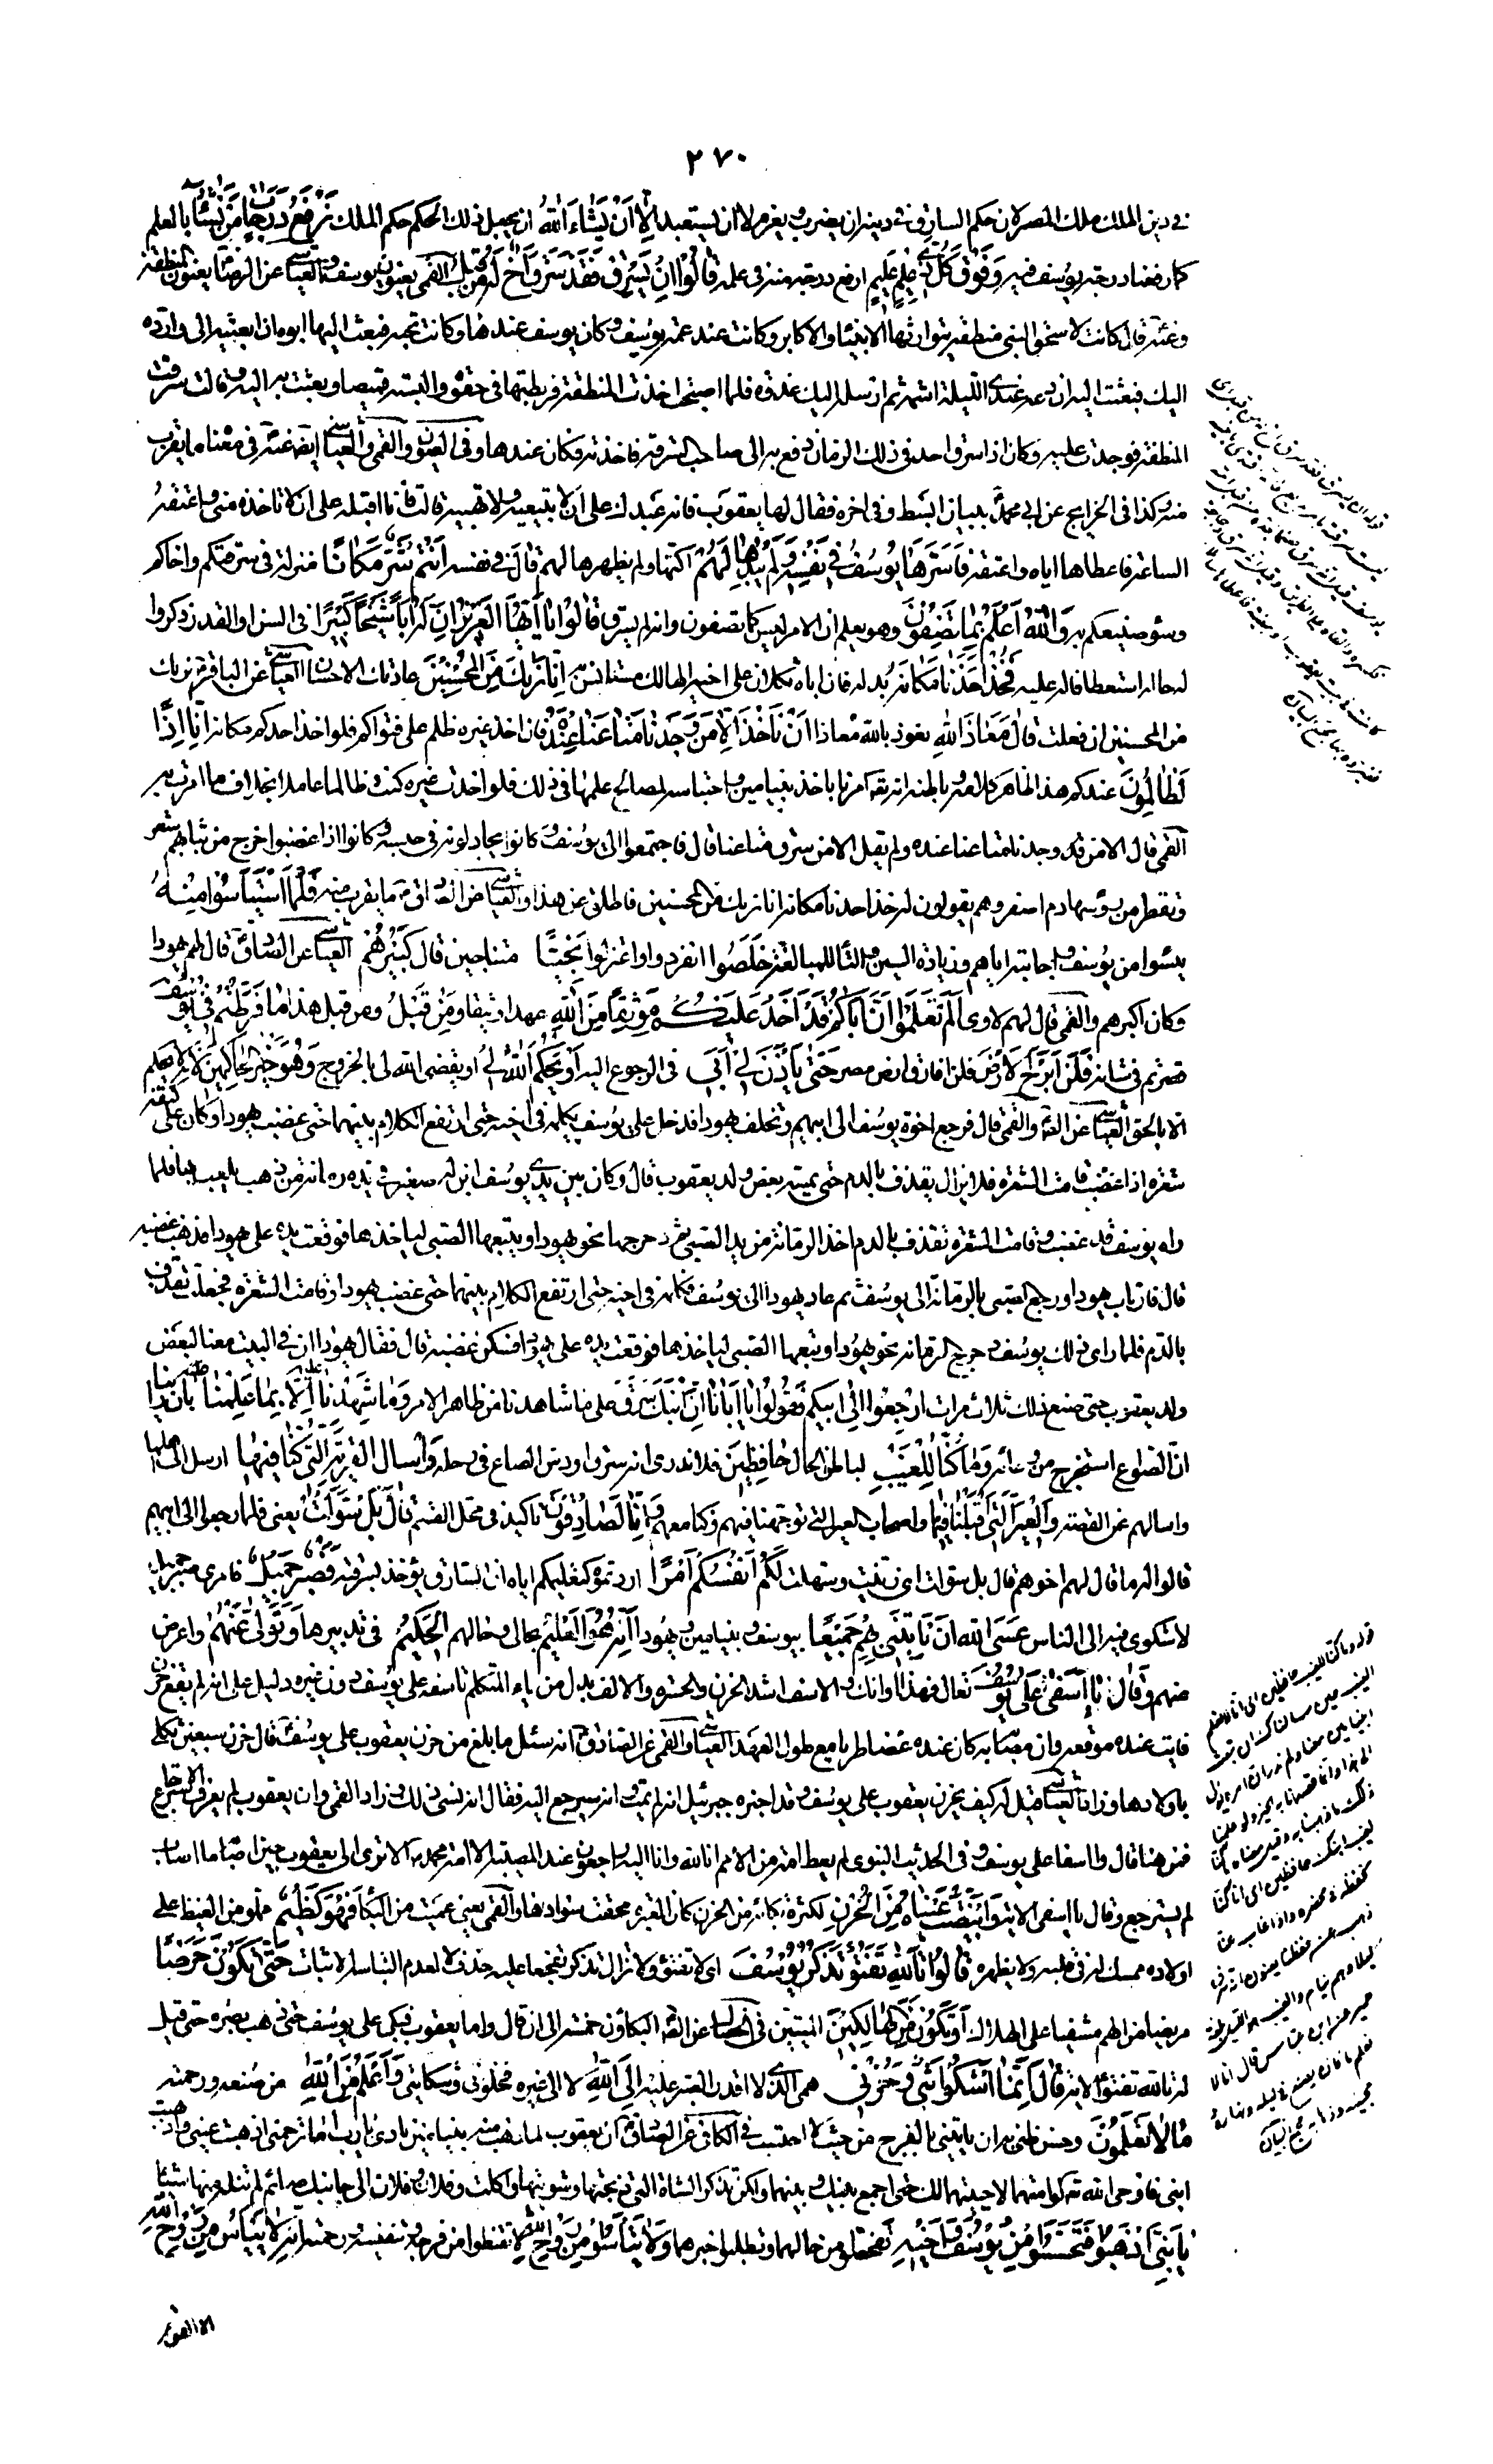 ٢٧٠
في دين الملك ملك المصر لان حكم السارق في دينه ان يضرب ويغرم لا ان يستعبد اِلَّا اَنْ يَشَاءَ اللهُ ان يجعل ذلك الحكم حكم الملك نَرْفَعُ دَرَجَاتٍ مَنْ نَشَاءُ بالعلم
كما رفعنا درجة يوسف فيه وَفَوْقَ كُلِّ ذِي عِلْمٍ عَلِيمٌ ارفع درجة منه في علمه قَالُوا اِنْ يَسْرِقْ فَقَدْ سَرَقَ اَخٌ لَهُ مِنْ قَبْلُ القمي يعنون يوسف والعياشي عن الرضا يعنون المنطقة
وعنه قال كانت لاسحق النبي منطقة يتوارثها الانبياء والاكابر وكانت عند عمة يوسف وكان يوسف عندها وكانت تحبه فبعث اليها ابوه ان ابعثيه الي وارده
اليك فبعثت اليه ان دعه عندي الليلة اشمه ثم ارسله اليك غدوة فلما اصبحت اخذت المنطقة فربطتها في حقوه والبسته قميصا وبعثت به اليه وقالت سرقت
المنطقة فوجدت عليه وكان اذا سرق احد في ذلك الزمان دفع به الى صاحب السرقة فاخذته فكان عندها وفي العيون والقمي والعياشي ايضا عنه في معناه ما يقرب
منه وكذا في الخرايج عن ابي محمد ببيان ابسط وفي اخره فقال لها يعقوب فانه عبدك على ان لا تبيعيه ولا تهبيه قالت فانا اقبله على ان لا تاخذه مني واعتقه
الساعة فاعطاها اياه واعتقته فَاَسَرَّهَا يُوسُفُ فِي نَفْسِهِ وَلَمْ يُبْدِهَا لَهُمْ اكتمها ولم يظهرها لهم قَالَ في نفسه اَنْتُمْ شَرٌّ مَكَانًا منزلة في سرقتكم واخاكم
وسوء صنيعكم به وَاللهُ اَعْلَمُ بِمَا تَصِفُونَ وهو يعلم ان الامر ليس كما تصفون وانه لم يسرق قَالُوا يَا اَيُّهَا الْعَزِيزُ اِنَّ لَهُ اَبًا شَيْخًا كَبِيرًا في السن او القدر ذكروا
له حاله استعطافا له عليه فَخُذْ اَحَدَنَا مَكَانَهُ بدله فان اباه ثكلان على اخيه الهالك مستانس به اِنَّا نَرٰيكَ مِنَ الْمُحْسِنِينَ عادتك الاحسان العياشي عن الباقر نريك
من المحسنين ان فعلت قَالَ مَعَاذَ اللهِ نعوذ بالله معاذا اَنْ نَأْخُذَ اِلَّا مَنْ وَجَدْنَا مَتَاعَنَا عِنْدَهُ فان اخذ غيره ظلم على فتواكم فلو اخذ احدكم مكانه اِنَّا اِذًا
لَظَالِمُونَ عندكم هذا ظاهر كلامه وباطنه ان الله امرنا باخذ بنيامين واحتباسه لمصالح علمها في ذلك فلو اخذت غيره كنت ظالما عاملا بخلاف ما امرت به
القمي قال الا من قد وجدنا متاعنا عنده ولم يقل الا من سرق متاعنا قال فاجتمعوا الى يوسف وكانوا يجادلونه في حبسه وكانوا اذا غضبوا اخرج من ثيابهم شعر
وتقطر من رؤسها دم اصفر وهم يقولون له خذ احدنا مكانه انا نريك من المحسنين فاطلق عن هذا والعياشي عن الصادق ما يقرب منه فَلَمَّا اسْتَيْأَسُوا مِنْهُ
يئسوا من يوسف واجابته اياهم وزيادة السين والتاء للمبالغة خَلَصُوا انفردوا واعتزلوا نَجِيًّا متناجين قَالَ كَبِيرُهُمْ العياشي عن الصادق قال لهم يهودا
وكان اكبرهم والقمي قال لهم لاوي اَلَمْ تَعْلَمُوا اَنَّ اَبَاكُمْ قَدْ اَخَذَ عَلَيْكُمْ مَوْثِقًا مِنَ اللهِ عهدا وثيقا وَمِنْ قَبْلُ ومن قبل هذا مَا فَرَّطْتُمْ فِي يُوسُفَ
قصرتم في شانه فَلَنْ اَبْرَحَ الْاَرْضَ فلن افارق ارض مصر حَتَّى يَأْذَنَ لِي اَبِي في الرجوع اليه اَوْ يَحْكُمَ اللهُ لِي او يقضي الله لي بالخروج وَهُوَ خَيْرُ الْحَاكِمِينَ لانه لا يحكم
الا بالحق العياشي عن الصادق والقمي قال فرجع اخوة يوسف الى ابيهم وتخلف يهودا فدخل على يوسف يكلمه في اخيه حتى ارتفع الكلام بينهما حتى غضب يهودا وكان على كتفه
شعرة اذا غضب قامت الشعرة فلا يزال يقذف بالدم حتى يمسه بعض ولد يعقوب قال وكان بين يدي يوسف ابن له صغير في يده رمانة من ذهب يلعب بها فلما
راه يوسف قد غضب وقامت الشعرة تقذف بالدم اخذ الرمانة من يد الصبي ثم دحرجها نحو يهودا ويتبعها الصبي لياخذها فوقعت يده على يهودا فذهب غضبه
قال فارتاب يهودا ورجع الصبي بالرمانة الى يوسف ثم عاد يهودا الى يوسف فكلمه في اخيه حتى ارتفع الكلام بينهما حتى غضب يهودا وقامت الشعرة فجعلت تقذف
بالدم فلما راى ذلك يوسف دحرج الرمانة نحو يهودا وتبعها الصبي لياخذها فوقعت يده على يهودا فسكن غضبه قال فقال يهودا ان في البيت معنا لبعض
ولد يعقوب حتى صنع ذلك ثلاث مرات اِرْجِعُوا اِلَى اَبِيكُمْ فَقُولُوا يَا اَبَانَا اِنَّ ابْنَكَ سَرَقَ على ما شاهدنا من ظاهر الامر وَمَا شَهِدْنَا عليه اِلَّا بِمَا عَلِمْنَا بان راينا
ان الصواع استخرج من وعائه وَمَا كُنَّا لِلْغَيْبِ لباطن الحال حَافِظِينَ فلا ندري انه سرق او دس الصاع في رحله وَاسْأَلِ الْقَرْيَةَ الَّتِي كُنَّا فِيهَا ارسل الى اهلها
واسالهم عن القصة وَالْعِيرَ الَّتِي اَقْبَلْنَا فِيهَا واصحاب العير التي توجهنا فيهم وكنا معهم وَاِنَّا لَصَادِقُونَ تاكيد في محل القسم قَالَ بَلْ سَوَّلَتْ يعني فلما رجعوا الى ابيهم
قالوا له ما قال لهم اخوهم قال بل سولت اي زينت وسهلت لَكُمْ اَنْفُسُكُمْ اَمْرًا اردتموه كتعليمكم اياه ان السارق يؤخذ بسرقته فَصَبْرٌ جَمِيلٌ فامري صبر جميل
لا شكوى فيه الى الناس عَسَى اللهُ اَنْ يَأْتِيَنِي بِهِمْ جَمِيعًا بيوسف وبنيامين ويهودا اِنَّهُ هُوَ الْعَلِيمُ بحالي وحالهم الْحَكِيمُ في تدبيرها وَتَوَلَّى عَنْهُمْ واعرض
عنهم وَقَالَ يَا اَسَفَى عَلَى يُوسُفَ تعال فهذا اوانك والاسف اشد الحزن والحسرة والالف بدل من ياء المتكلم تاسفه على يوسف دون غيره دليل على انه لم يقع حزن
فايت عنده موقعه وان مصابه كان عنده غضا طريا مع طول العهد العياشي والقمي عن الصادق انه سئل ما بلغ من حزن يعقوب على يوسف قال حزن سبعين ثكلى
باولادها وزاد العياشي قيل له كيف يحزن يعقوب على يوسف وقد اخبره جبرئيل انه لم يمت وانه سيرجع اليه فقال انه نسي ذلك وزاد القمي وان يعقوب لم يعرف الاسترجاع
فمن هنا قال وا اسفا على يوسف وفي الحديث النبوي لم يعط امة من الامم انا لله وانا اليه راجعون عند المصيبة الا امة محمد الا ترى الى يعقوب حين اصابه ما اصاب
لم يسترجع وقال يا اسفى الاية وَابْيَضَّتْ عَيْنَاهُ مِنَ الْحُزْنِ لكثرة بكائه من الحزن كان العبرة محقت سوادها والقمي يعني عميت من البكاء فَهُوَ كَظِيمٌ مملو من الغيظ على
اولاده ممسك له في قلبه ولا يظهره قَالُوا تَاللهِ تَفْتَؤُ تَذْكُرُ يُوسُفَ اي لا تفتؤ ولا تزال تذكره تفجعا عليه حذف لا لعدم التباسه بالاثبات حَتَّى تَكُونَ حَرَضًا
مريضا من الهم مشفيا على الهلاك اَوْ تَكُونَ مِنَ الْهَالِكِينَ الميتين في الخصال عن الصادق البكاؤن خمسة الى ان قال واما يعقوب فبكى على يوسف حتى ذهب بصره حتى قيل
له تالله تفتؤا الاية قَالَ اِنَّمَا اَشْكُو بَثِّي وَحُزْنِي همي الذي لا اقدر الصبر عليه اِلَى اللهِ لا الى غيره فخلوني وشكايتي وَاَعْلَمُ مِنَ اللهِ من صنعه ورحمته
مَا لَا تَعْلَمُونَ وحسن ظني به ان ياتيني بالفرج من حيث لا احتسب في الكافي عن الصادق ان يعقوب لما ذهب منه بنيامين نادى يا رب اما ترحمني اذهبت عيني واذهبت
ابني فاوحى الله لو امتهما لاحييتهما لك حتى اجمع بينك وبينهما ولكن تذكر الشاة التي ذبحتها وشويتها واكلت وفلان وفلان الى جانبك صائم لم تنله منها شيئا
يَا بَنِيَّ اذْهَبُوا فَتَحَسَّسُوا مِنْ يُوسُفَ وَاَخِيهِ تفحصوا من حالهما وتطلبوا خبرهما وَلَا تَيْأَسُوا مِنْ رَوْحِ اللهِ لا تقنطوا من فرجه وتنفيسه ورحمته اِنَّهُ لَا يَيْأَسُ مِنْ رَوْحِ اللهِ
الا القوم
قوله وما كنا للغيب حافظين